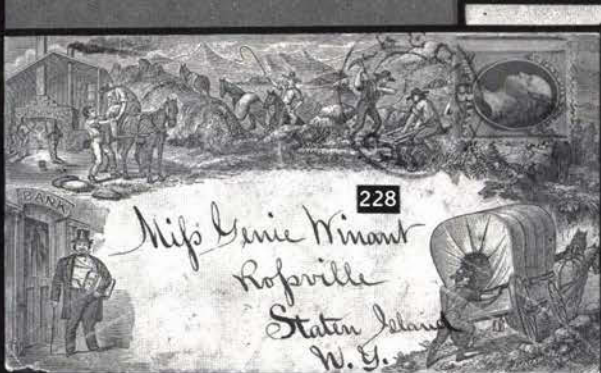 BANK
228
Miss Genie Winant
Rossville
Staten Island
N. Y.